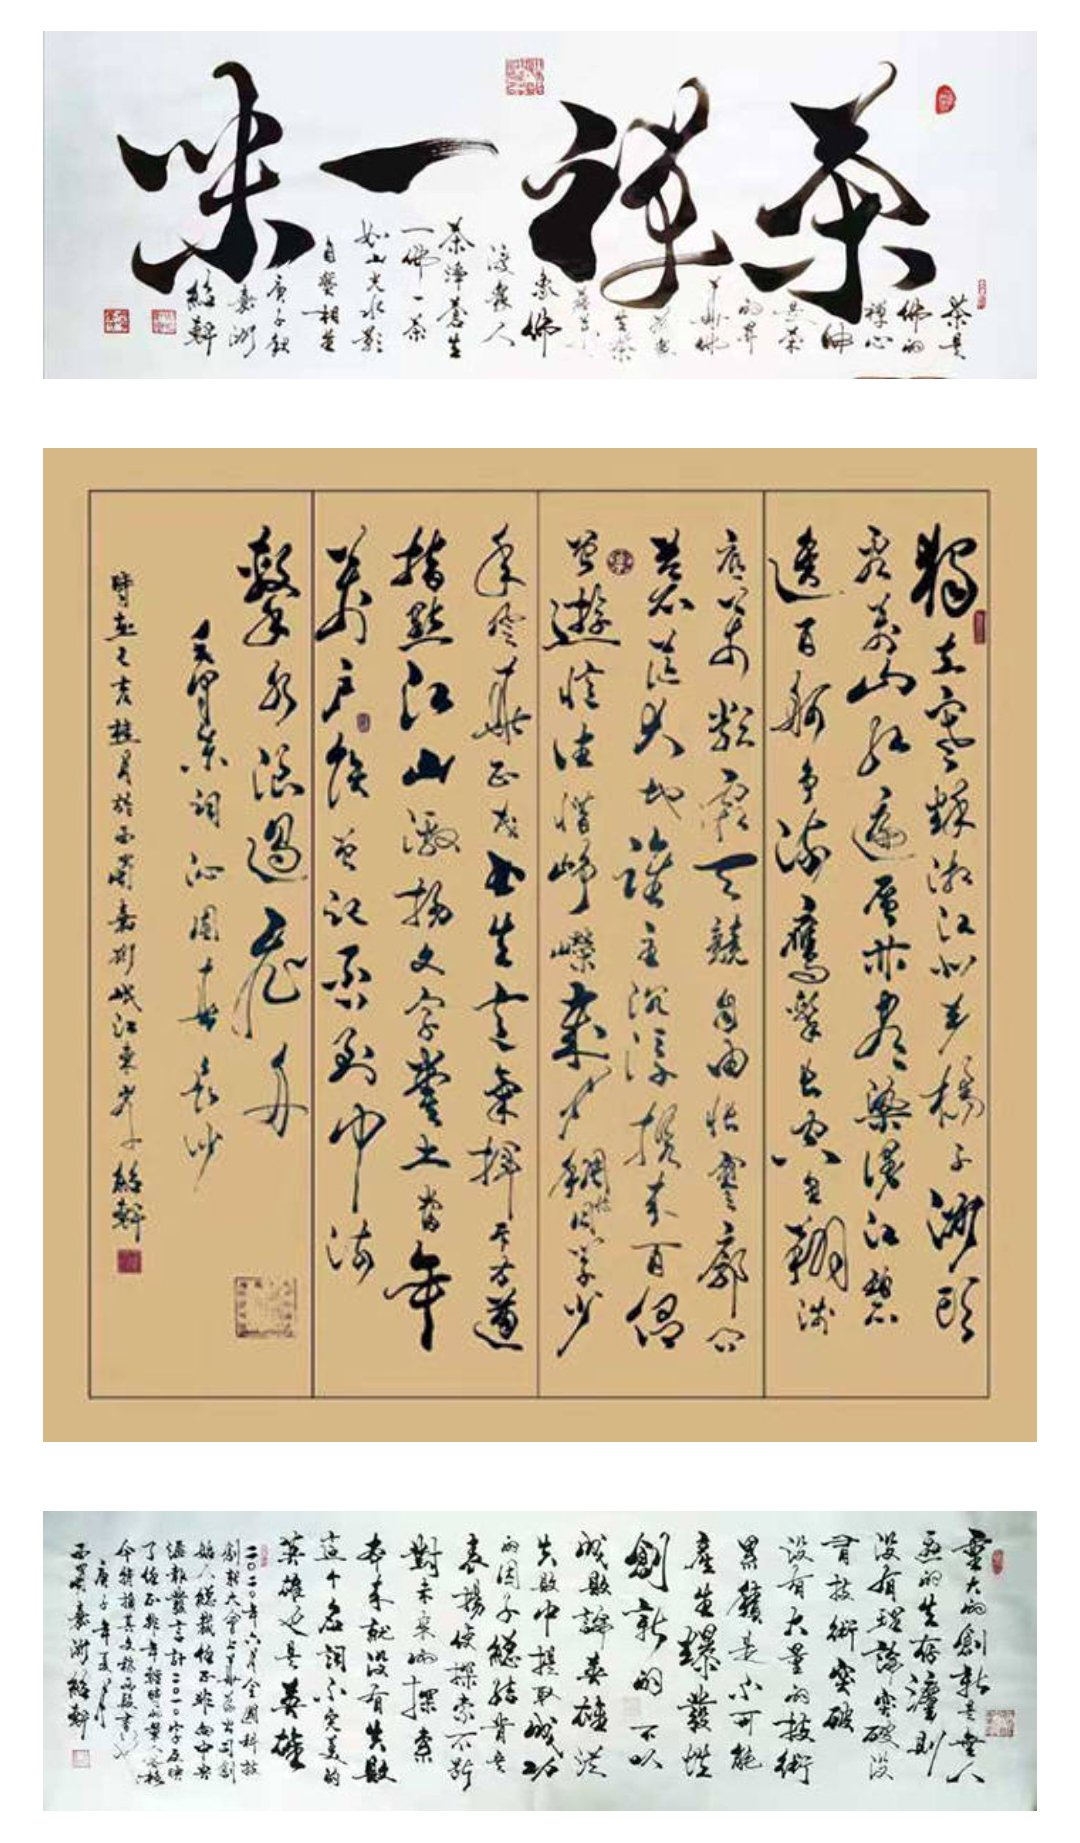 茶禪一味
茶是
佛的
禪心
佛
是茶
的昇
華佛
渡衆人
茶渟蒼生
一佛一茶
如山光水影
自獎相並
庚子秋
嘉州
絡軒
獨立寒秋湘江北去橘子洲頭
看萬山紅遍層林盡染漫江碧
透百舸爭流鷹擊長空魚翔淺
底萬類霜天競自由悵寥廓問
蒼茫大地誰主沉浮攜來百侶
曾遊憶往昔崢嶸歲月稠恰同學少
年風華正茂書生意氣揮斥方遒
指點江山激揚文字糞土當年
萬戶侯曾記否到中流
擊水浪遏飛舟
毛澤東詞沁園春長沙
時在己亥桂月於西蜀嘉州岷江東岸絡軒
重大的創新是無人
區的生存法則
没有理論突破没
有技術突破
没有大量的技術
累積是不可能
產生爆發性
創新的不以
成敗論英雄從
失敗中提取成功
的因子總結肯定
表揚使探索不斷
對未來的探索
本來就没有失敗
這个名詞不完美的
英雄也是英雄
二〇二〇年六月全國科技
創新大會上華為公司創
始人總裁任正非向中央
滙報發言計二〇〇字反映
了任正非
今特摘其文稿兩段書
庚子年夏月
西蜀嘉州絡軒